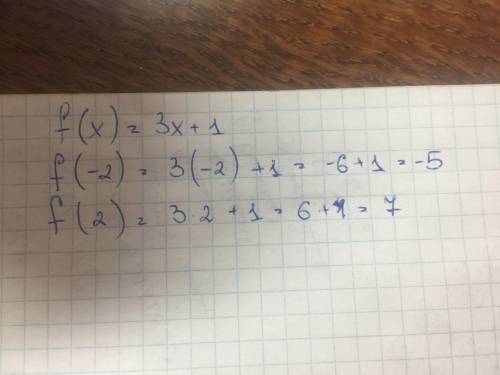 f(x) = 3x+1
f(-2) = 3(-2) +1 = -6+1 = -5
f(2) = 3·2 +1 = 6+1 = 7